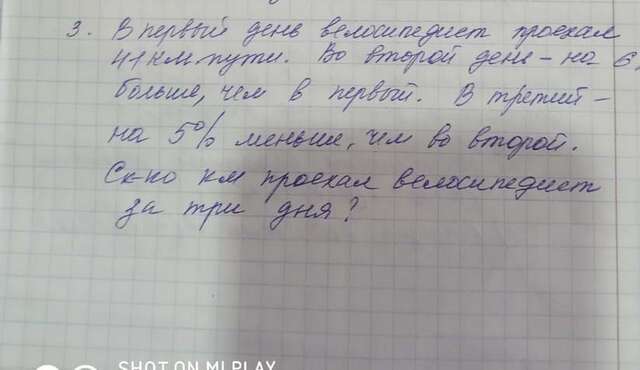 3. В первый день велосипедист проехал
41 км пути. Во второй день - на 6
больше, чем в первый. В третий -
на 5% меньше, чем во второй.
Ск-ко км проехал велосипедист
за три дня?
SHOT ON MI PLAY